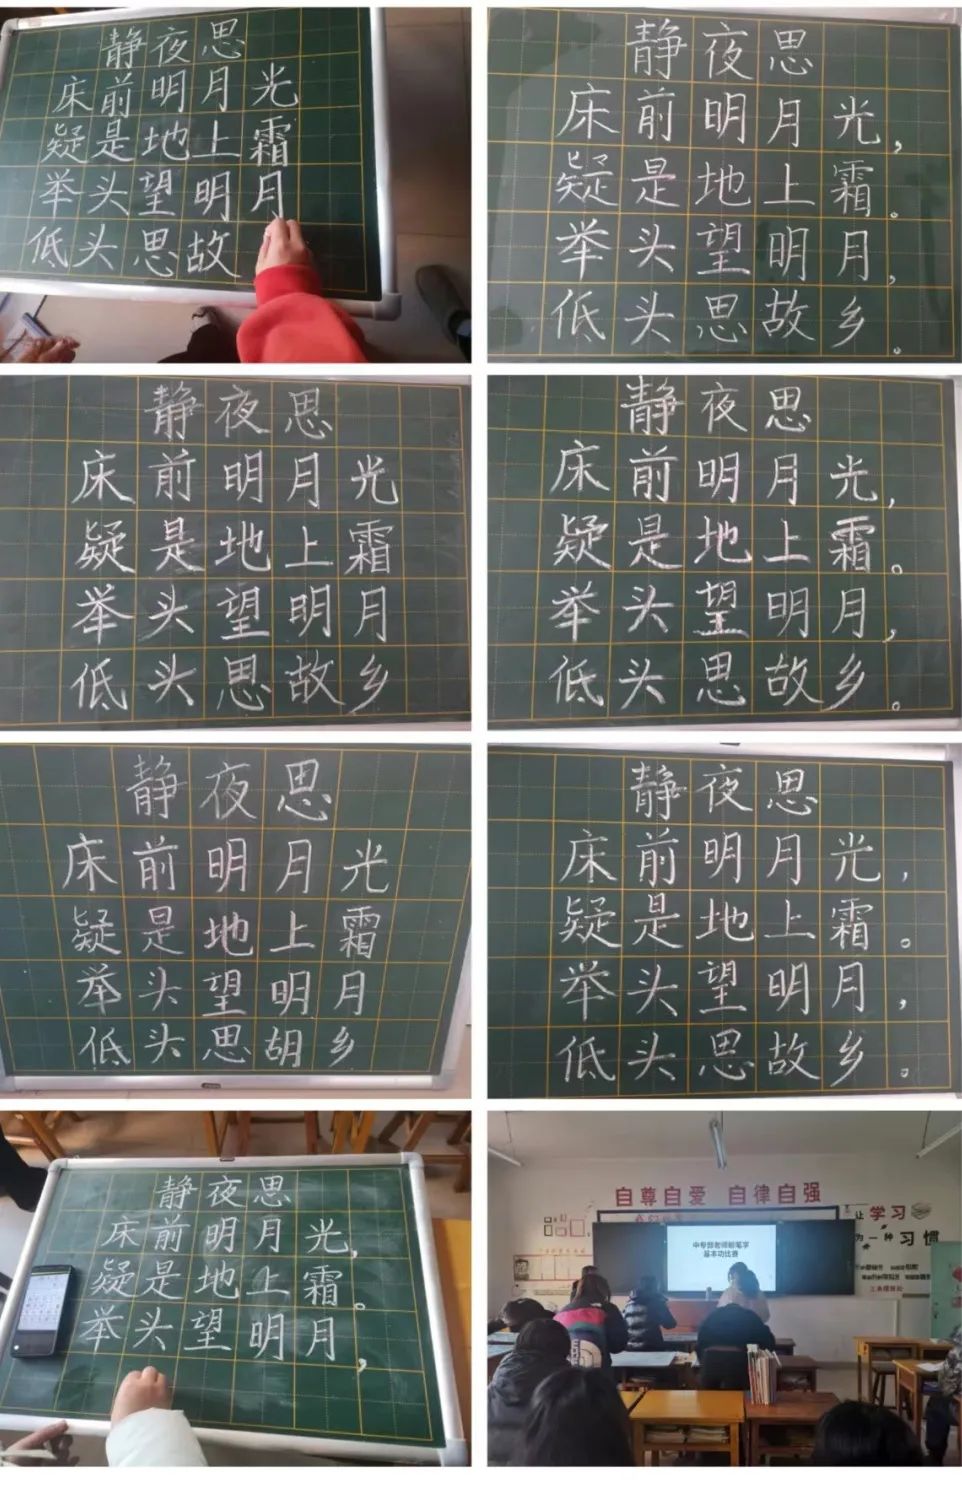 静夜思
床前明月光
疑是地上霜
举头望明月
低头思故
静夜思
床前明月光，
疑是地上霜。
举头望明月，
低头思故乡。
静夜思
床前明月光
疑是地上霜
举头望明月
低头思故乡
静夜思
床前明月光，
疑是地上霜。
举头望明月，
低头思故乡。
静夜思
床前明月光
疑是地上霜
举头望明月
低头思胡乡
静夜思
床前明月光，
疑是地上霜。
举头望明月，
低头思故乡。
静夜思
床前明月光，
疑是地上霜。
举头望明月，
自尊自爱 自律自强
中专部老师粉笔字
基本功比赛
让学习
为一种习惯